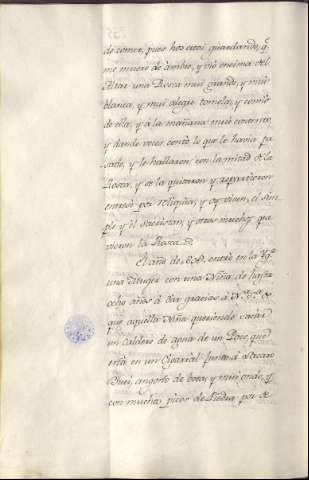 de comer, pues hos estoi guardando, q.e
me muero de ambre, y vio encima del
Altar una Rosca mui grande, y mui
blanca, y mui alegre tomola, y comió
de ella, y á la mañana mui contento,
y dando voces contó lo que le havia pa
sado, y le hallaron con la mitad de la
Rosca, y se la quitaron y repartieron
entre si por Reliquia, y oy viven, el sim
ple y el Sacristan, y otros muchos que
vieron la Rosca
El año de 602. entró en la Ygª
una Muger con una Niña de hasta
ocho años á dar gracias á N.ª S.ª de
que aquella Niña queriendo sacar
un caldero de agua de un Pozo, que
està en un junto à
angosto de boca, y mui ondo, y
con muchos picos de Piedra, por de